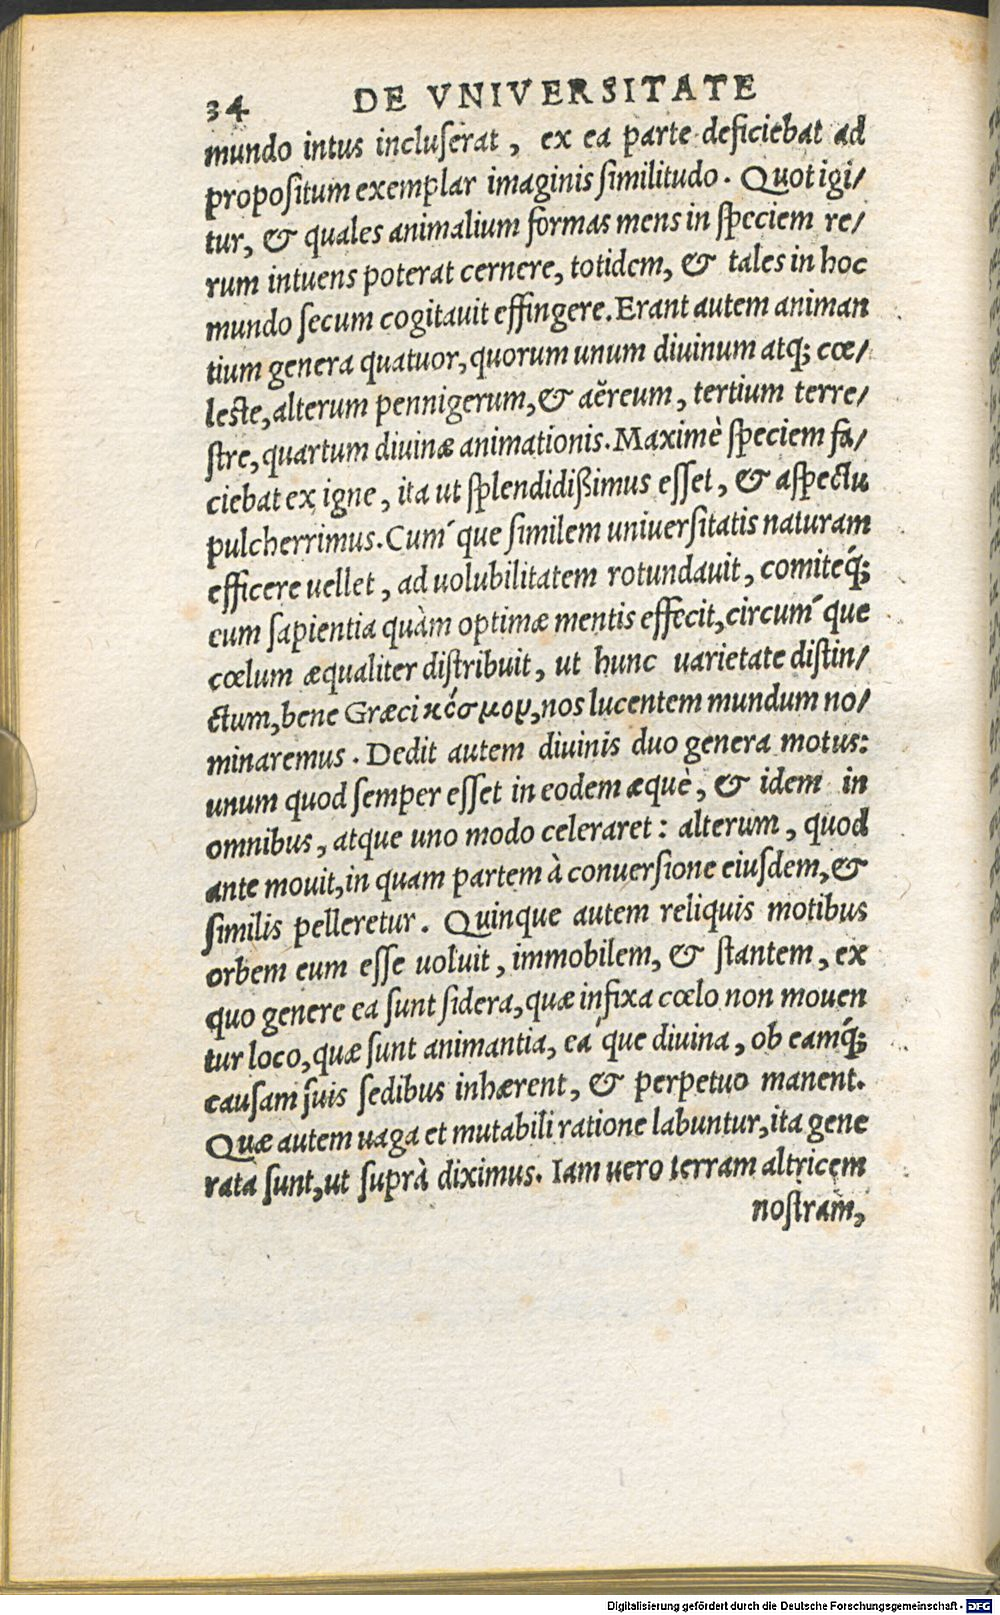 34 DE VNIVERSITATE
mundo intus incluſerat, ex ea parte deficiebat ad
propoſitum exemplar imaginis ſimilitudo. Quot igi/
tur, & quales animalium formas mens in ſpeciem re/
rum intuens poterat cernere, totidem, & tales in hoc
mundo ſecum cogitauit effingere. Erant autem animan
tium genera quatuor, quorum unum diuinum atq; cœ/
leſte, alterum pennigerum, & aëreum, tertium terre/
ſtre, quartum diuinæ animationis. Maximè ſpeciem fa/
ciebat ex igne, ita ut ſplendidißimus eſſet, & aſpectu
pulcherrimus. Cum´que ſimilem uniuerſitatis naturam
efficere uellet, ad uolubilitatem rotundauit, comiteq́;
eum ſapientia quàm optimæ mentis effecit, circum´que
cœlum æqualiter diſtribuit, ut hunc uarietate diſtin/
ctum, bene Græci κόσμον, nos lucentem mundum no/
minaremus. Dedit autem diuinis duo genera motus:
unum quod ſemper eſſet in eodem æquè, & idem in
omnibus, atque uno modo celeraret: alterum, quod
ante mouit, in quam partem à conuerſione eiuſdem, &
ſimilis pelleretur. Quinque autem reliquis motibus
orbem eum eſſe uoluit, immobilem, & ſtantem, ex
quo genere ea ſunt ſidera, quæ infixa cœlo non mouen
tur loco, quæ ſunt animantia, ea´que diuina, ob eamq́;
cauſam ſuis ſedibus inhærent, & perpetuo manent.
Quæ autem uaga et mutabili ratione labuntur, ita gene
rata ſunt, ut ſuprà diximus. Iam uero terram altricem
noſtram,
Digitalisierung gefördert durch die Deutsche Forschungsgemeinschaft - DFG